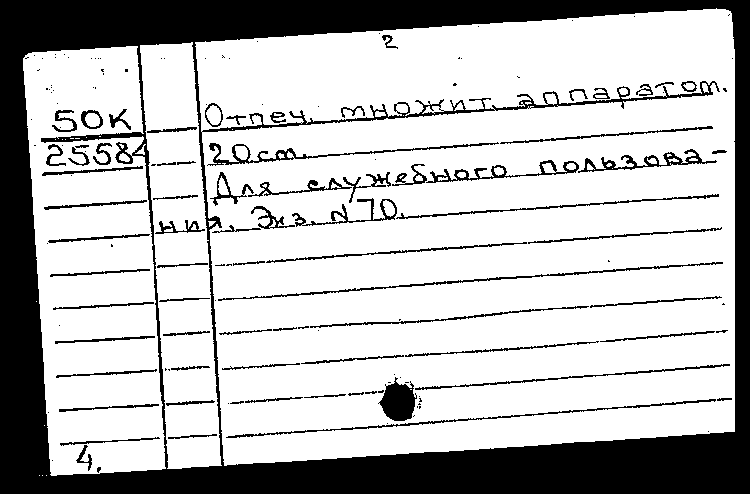 2
50К Отпеч. множит. аппаратом.
25584 20см.
Для служебного пользова-
ния. Экз. N 70.
4.